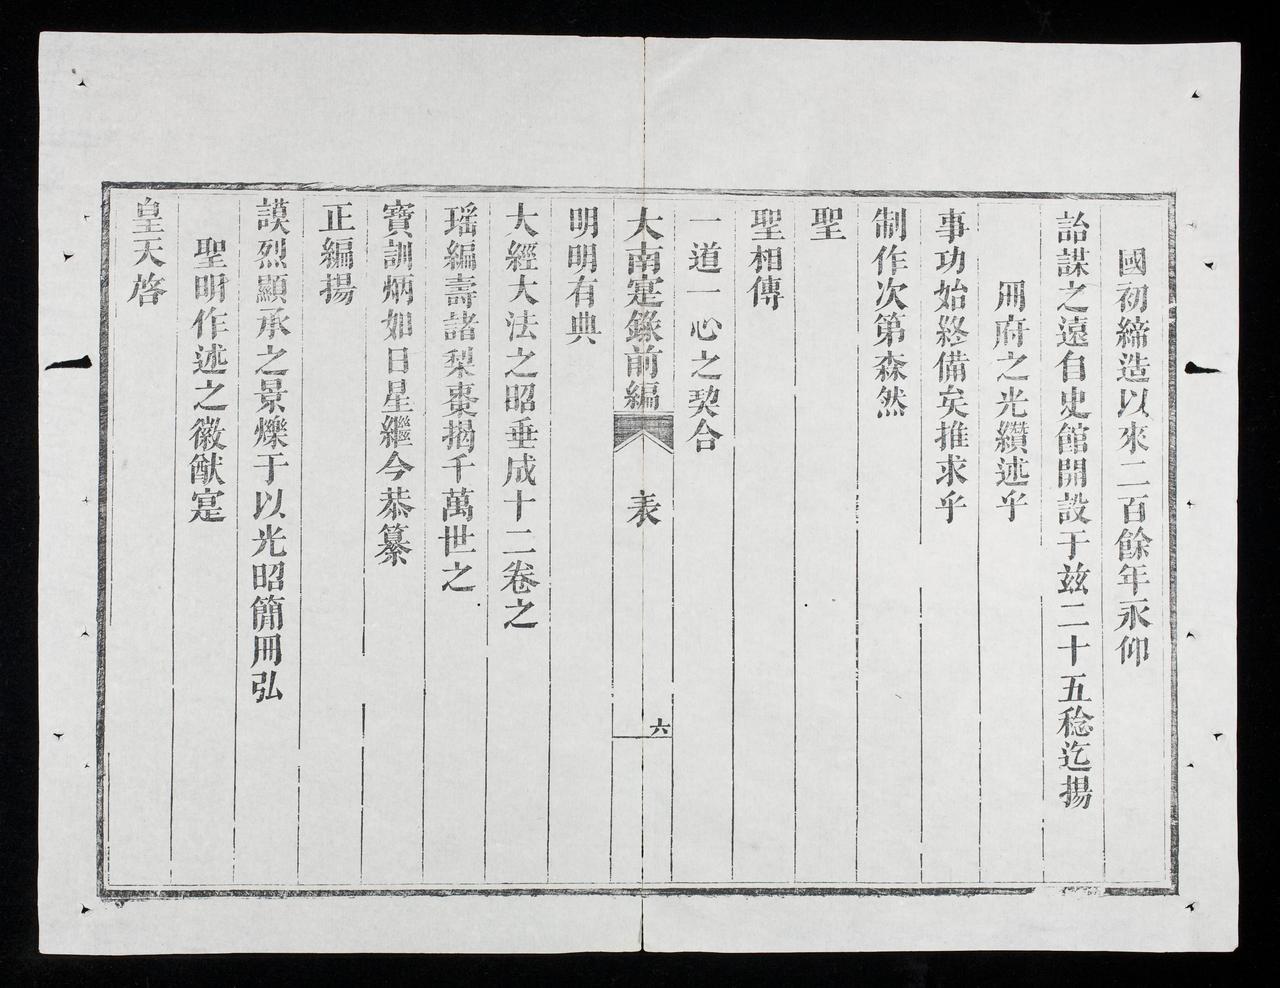 國初締造以來二百餘年永仰
詒謀之遠自史館開設于玆二十五稔迄揚
冊府之光纘述乎
事功始終備矣推求乎
制作次第森然
聖
聖相傳
一道一心之契合
大南寔錄前編 表 六
明明有典
大經大法之昭垂成十二卷之
瑤編壽諸梨棗揭千萬世之
寶訓炳如日星繼今恭纂
正編揚
謨烈顯承之景爍于以光昭簡冊弘
聖明作述之徽猷寔
皇天啓